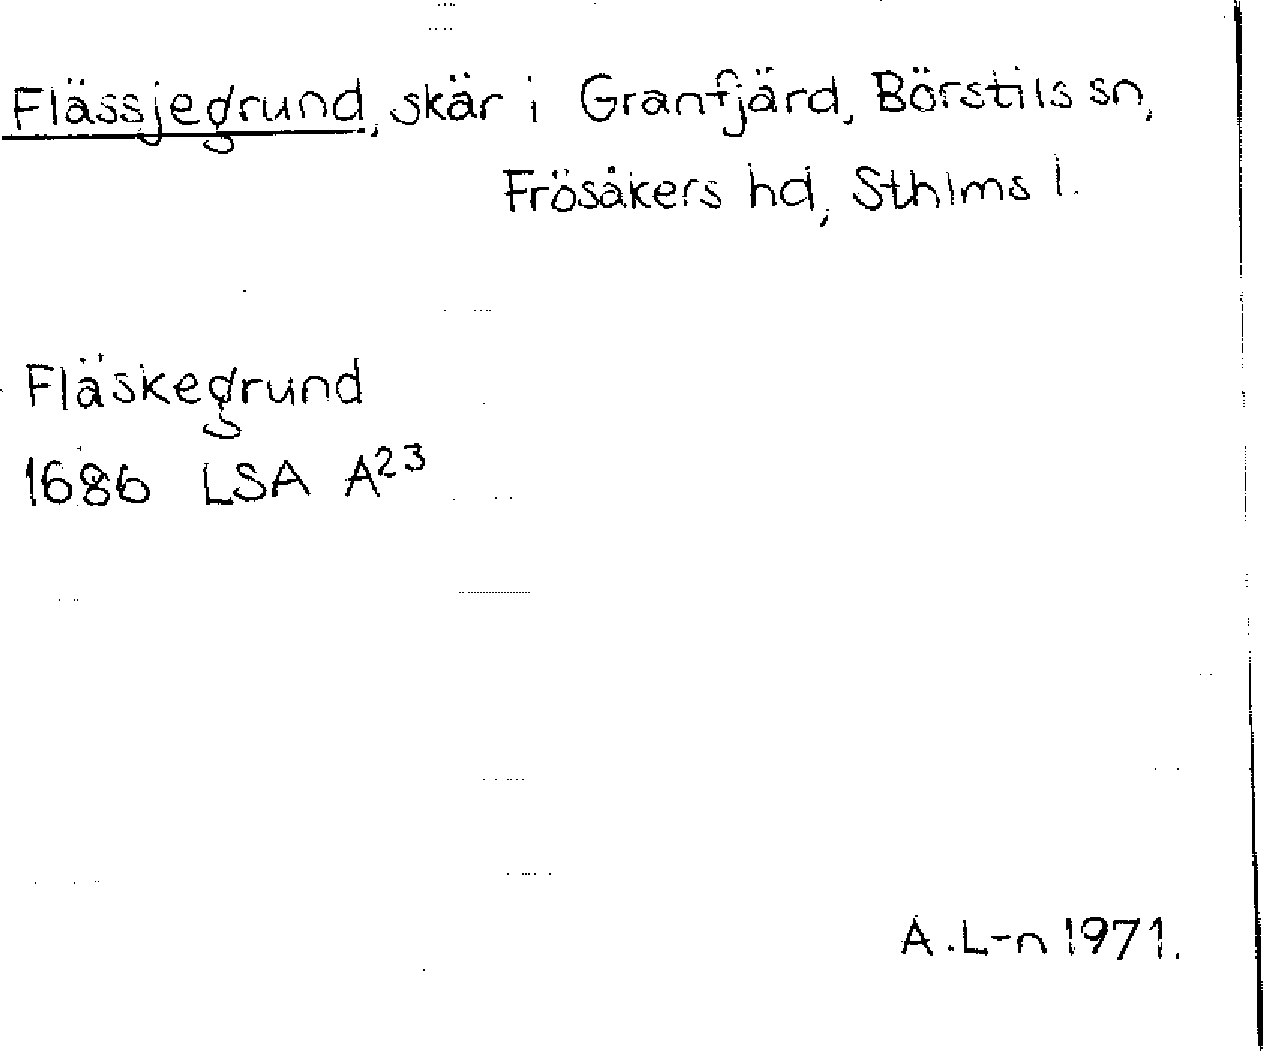 Flässjegrund, skär i Granfjärd, Börstils sn,
Frösåkers hd, Sthlms l.
Fläskegrund
1686 LSA A²³
A.L-n 1971.